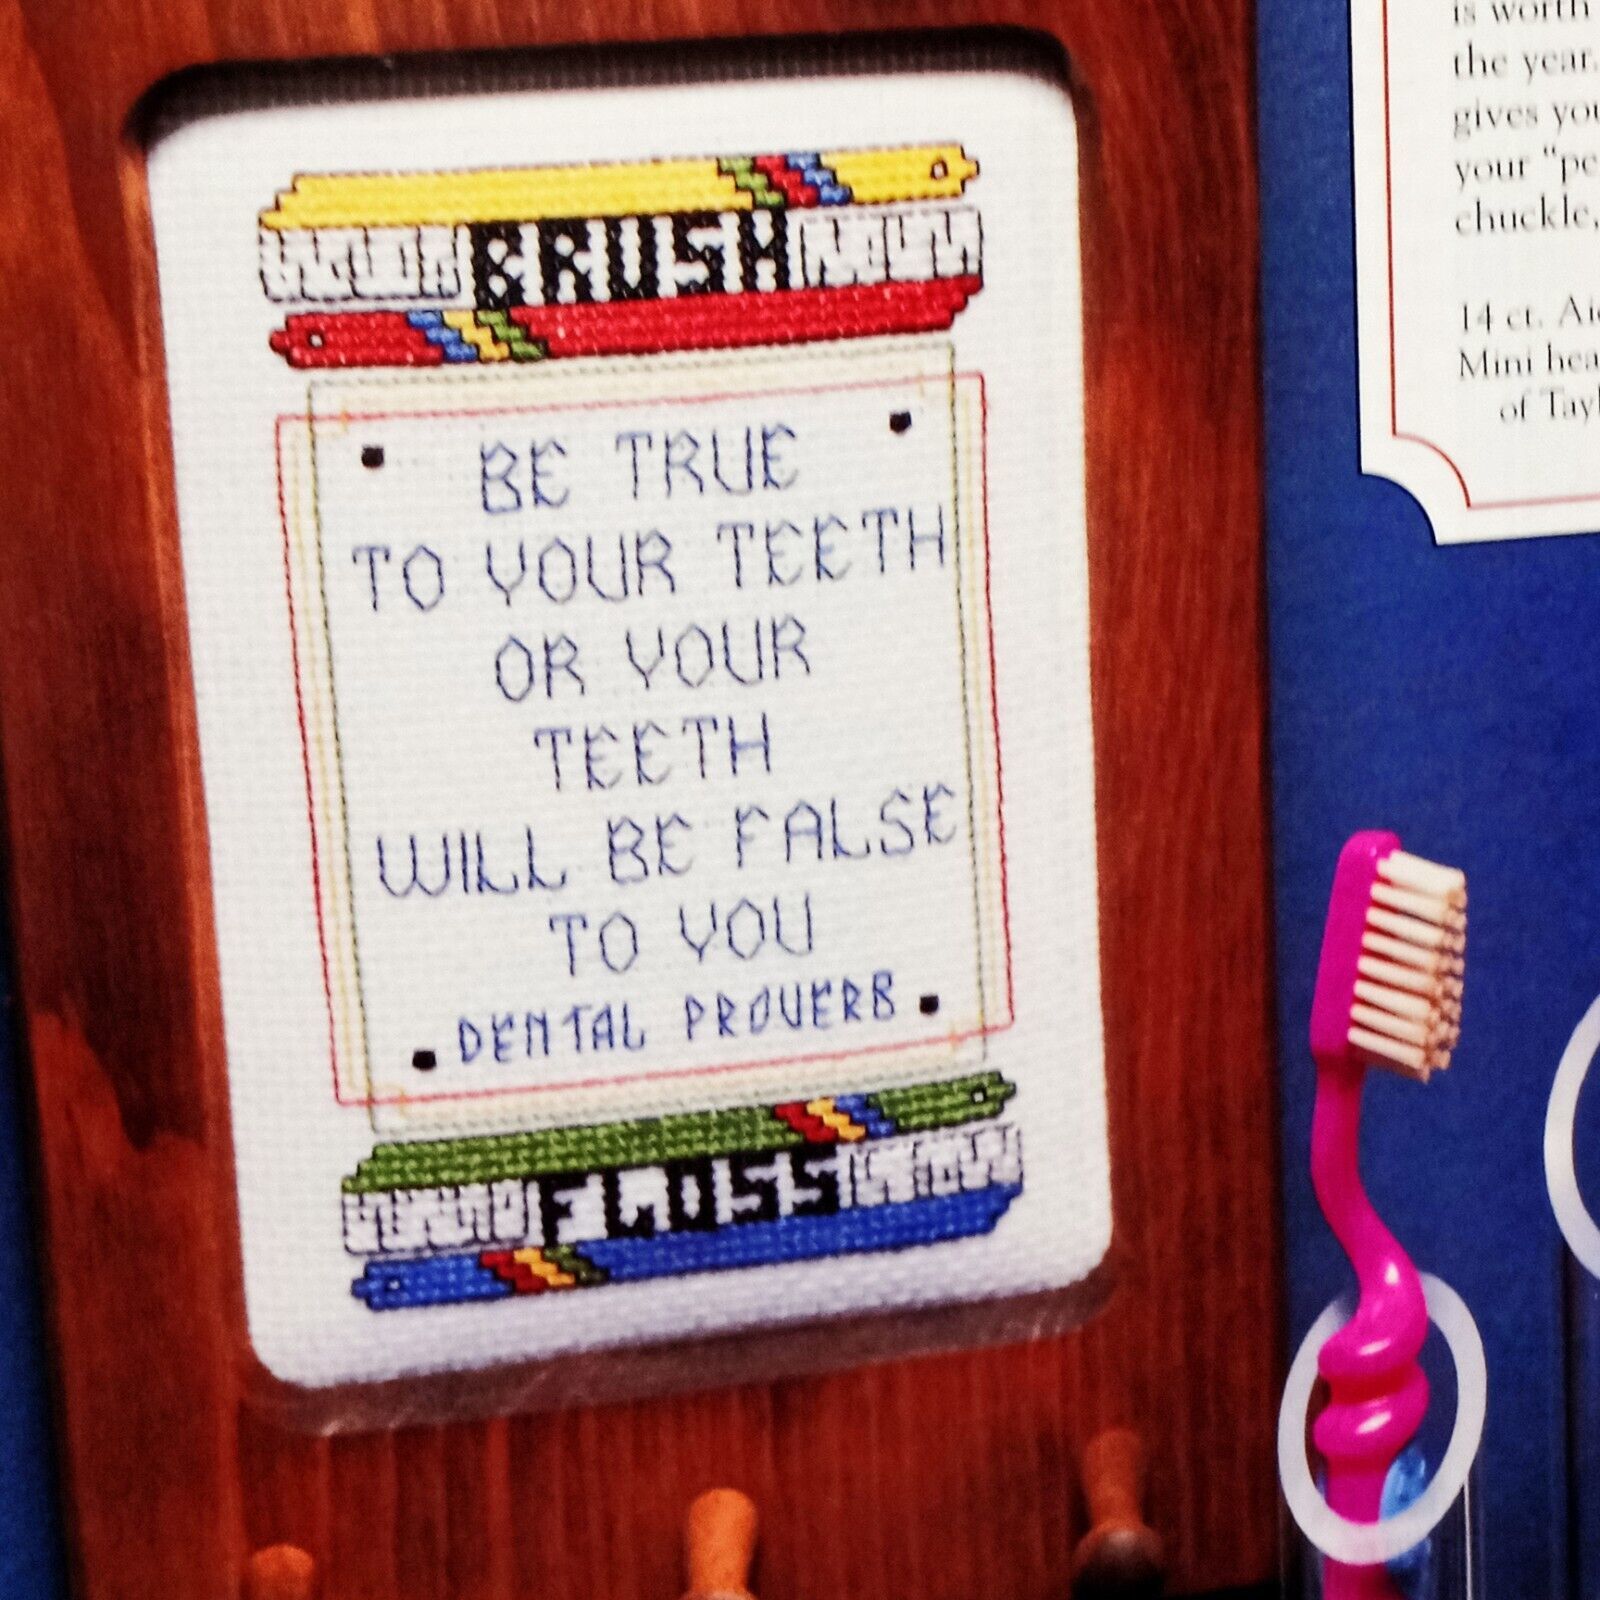 BRUSH
BE TRUE
TO YOUR TEETH
OR YOUR
TEETH
WILL BE FALSE
TO YOU
DENTAL PROVERB
FLOSS
is worth
the year.
gives you
your "pe
chuckle,
14 ct. Aid
Mini hea
of Tayl